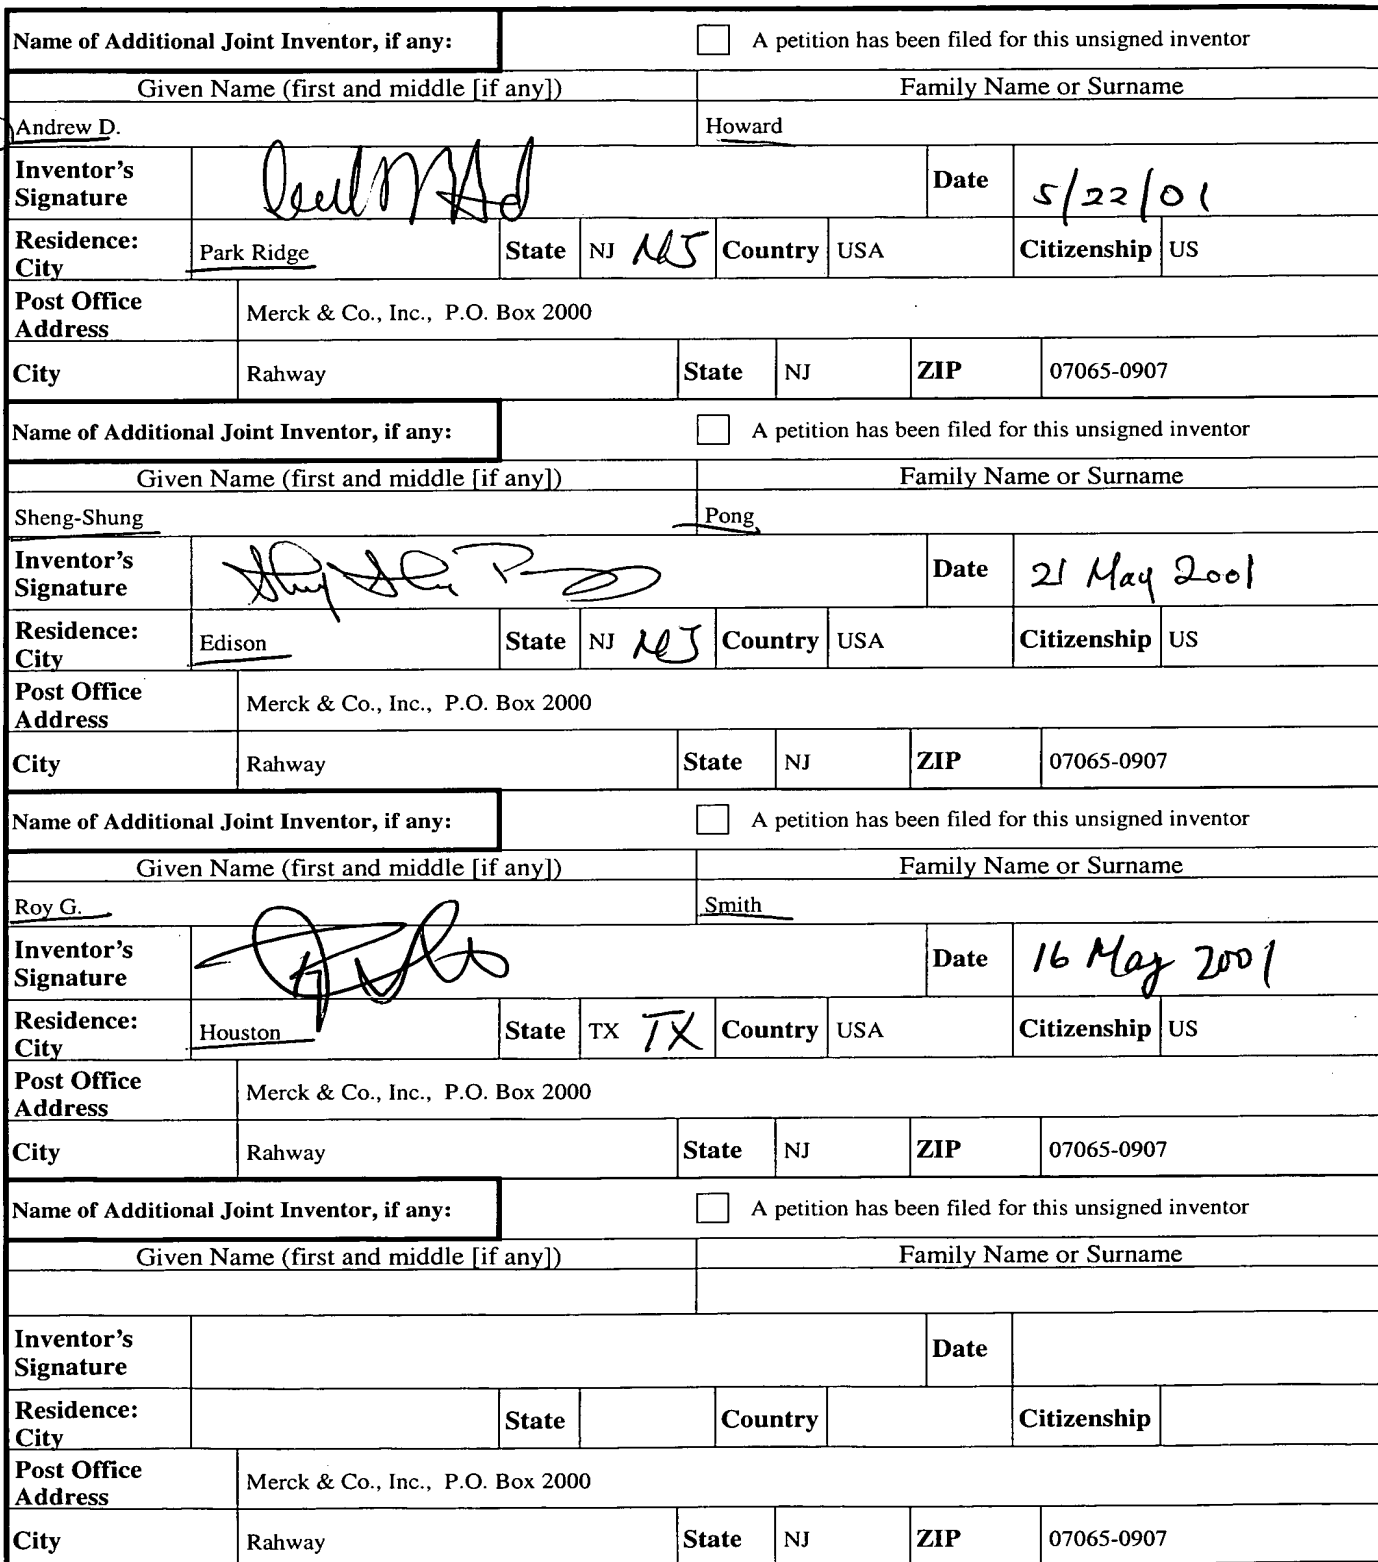 Name of Additional Joint Inventor, if any: A petition has been filed for this unsigned inventor
Given Name (first and middle [if any]) Family Name or Surname
Andrew D. Howard
Inventor's Signature Date 5/22/01
Residence: City Park Ridge State NJ NJ Country USA Citizenship US
Post Office Address Merck & Co., Inc., P.O. Box 2000
City Rahway State NJ ZIP 07065-0907
Name of Additional Joint Inventor, if any: A petition has been filed for this unsigned inventor
Given Name (first and middle [if any]) Family Name or Surname
Sheng-Shung Pong
Inventor's Signature Date 21 May 2001
Residence: City Edison State NJ NJ Country USA Citizenship US
Post Office Address Merck & Co., Inc., P.O. Box 2000
City Rahway State NJ ZIP 07065-0907
Name of Additional Joint Inventor, if any: A petition has been filed for this unsigned inventor
Given Name (first and middle [if any]) Family Name or Surname
Roy G. Smith
Inventor's Signature Date 16 May 2001
Residence: City Houston State TX TX Country USA Citizenship US
Post Office Address Merck & Co., Inc., P.O. Box 2000
City Rahway State NJ ZIP 07065-0907
Name of Additional Joint Inventor, if any: A petition has been filed for this unsigned inventor
Given Name (first and middle [if any]) Family Name or Surname
Inventor's Signature Date
Residence: City State Country Citizenship
Post Office Address Merck & Co., Inc., P.O. Box 2000
City Rahway State NJ ZIP 07065-0907